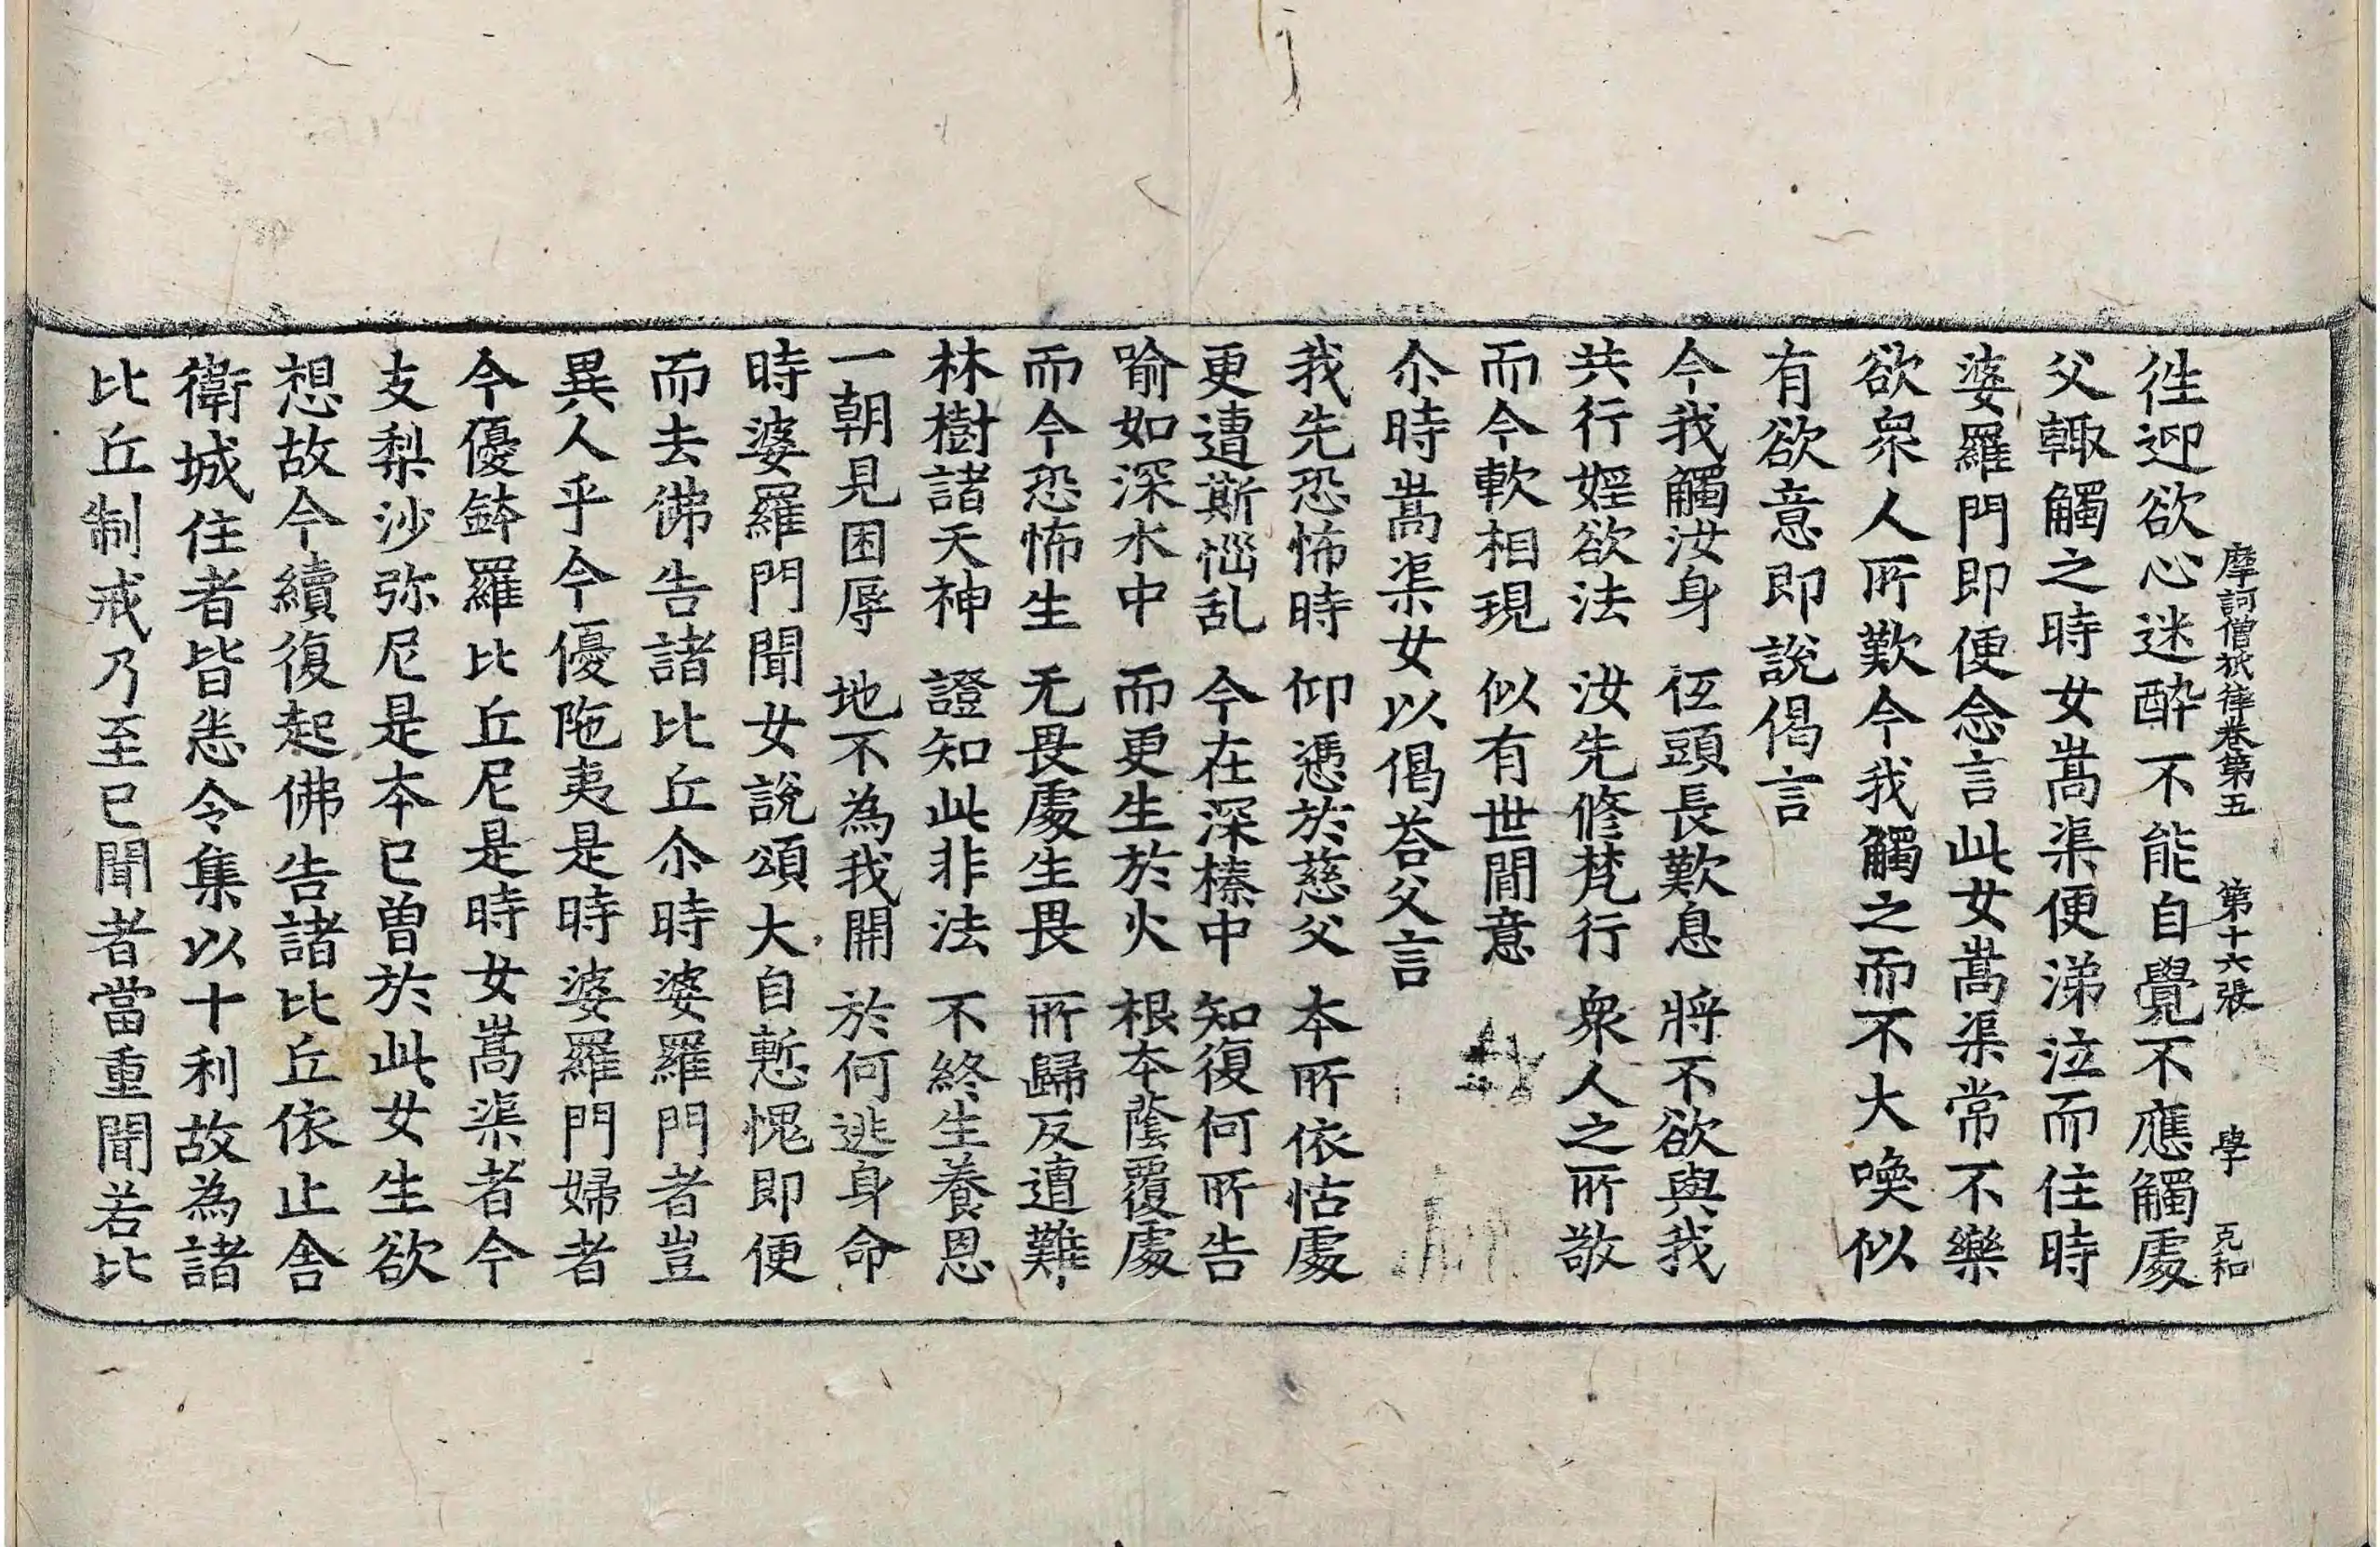 摩訶僧祇律卷第五　第十六張　學　克和
徃迎欲心迷醉不能自覺不應觸處
父輙觸之時女嵩渠便涕泣而住時
婆羅門即便念言此女嵩渠常不樂
欲衆人所歎今我觸之而不大喚似
有欲意即說偈言
今我觸汝身　仾頭長歎息　將不欲與我
共行婬欲法　汝先修梵行　衆人之所敬
而今軟相現　似有世間意
尒時嵩渠女以偈荅父言
我先恐怖時　仰憑於慈父　本所依怙處
更遭斯惱乱　今在深榛中　知復何所告
喻如深水中　而更生於火　根本蔭覆處
而今恐怖生　无畏處生畏　所歸反遭難
林樹諸天神　證知此非法　不終生養恩
一朝見困辱　地不為我開　於何逃身命
時婆羅門聞女說頌大自慙愧即便
而去佛告諸比丘尒時婆羅門者豈
異人乎今優陁夷是時婆羅門婦者
今優鉢羅比丘尼是時女嵩渠者今
支梨沙弥尼是本已曽於此女生欲
想故今續復起佛告諸比丘依止舍
衛城住者皆悉令集以十利故為諸
比丘制戒乃至已聞者當重聞若比